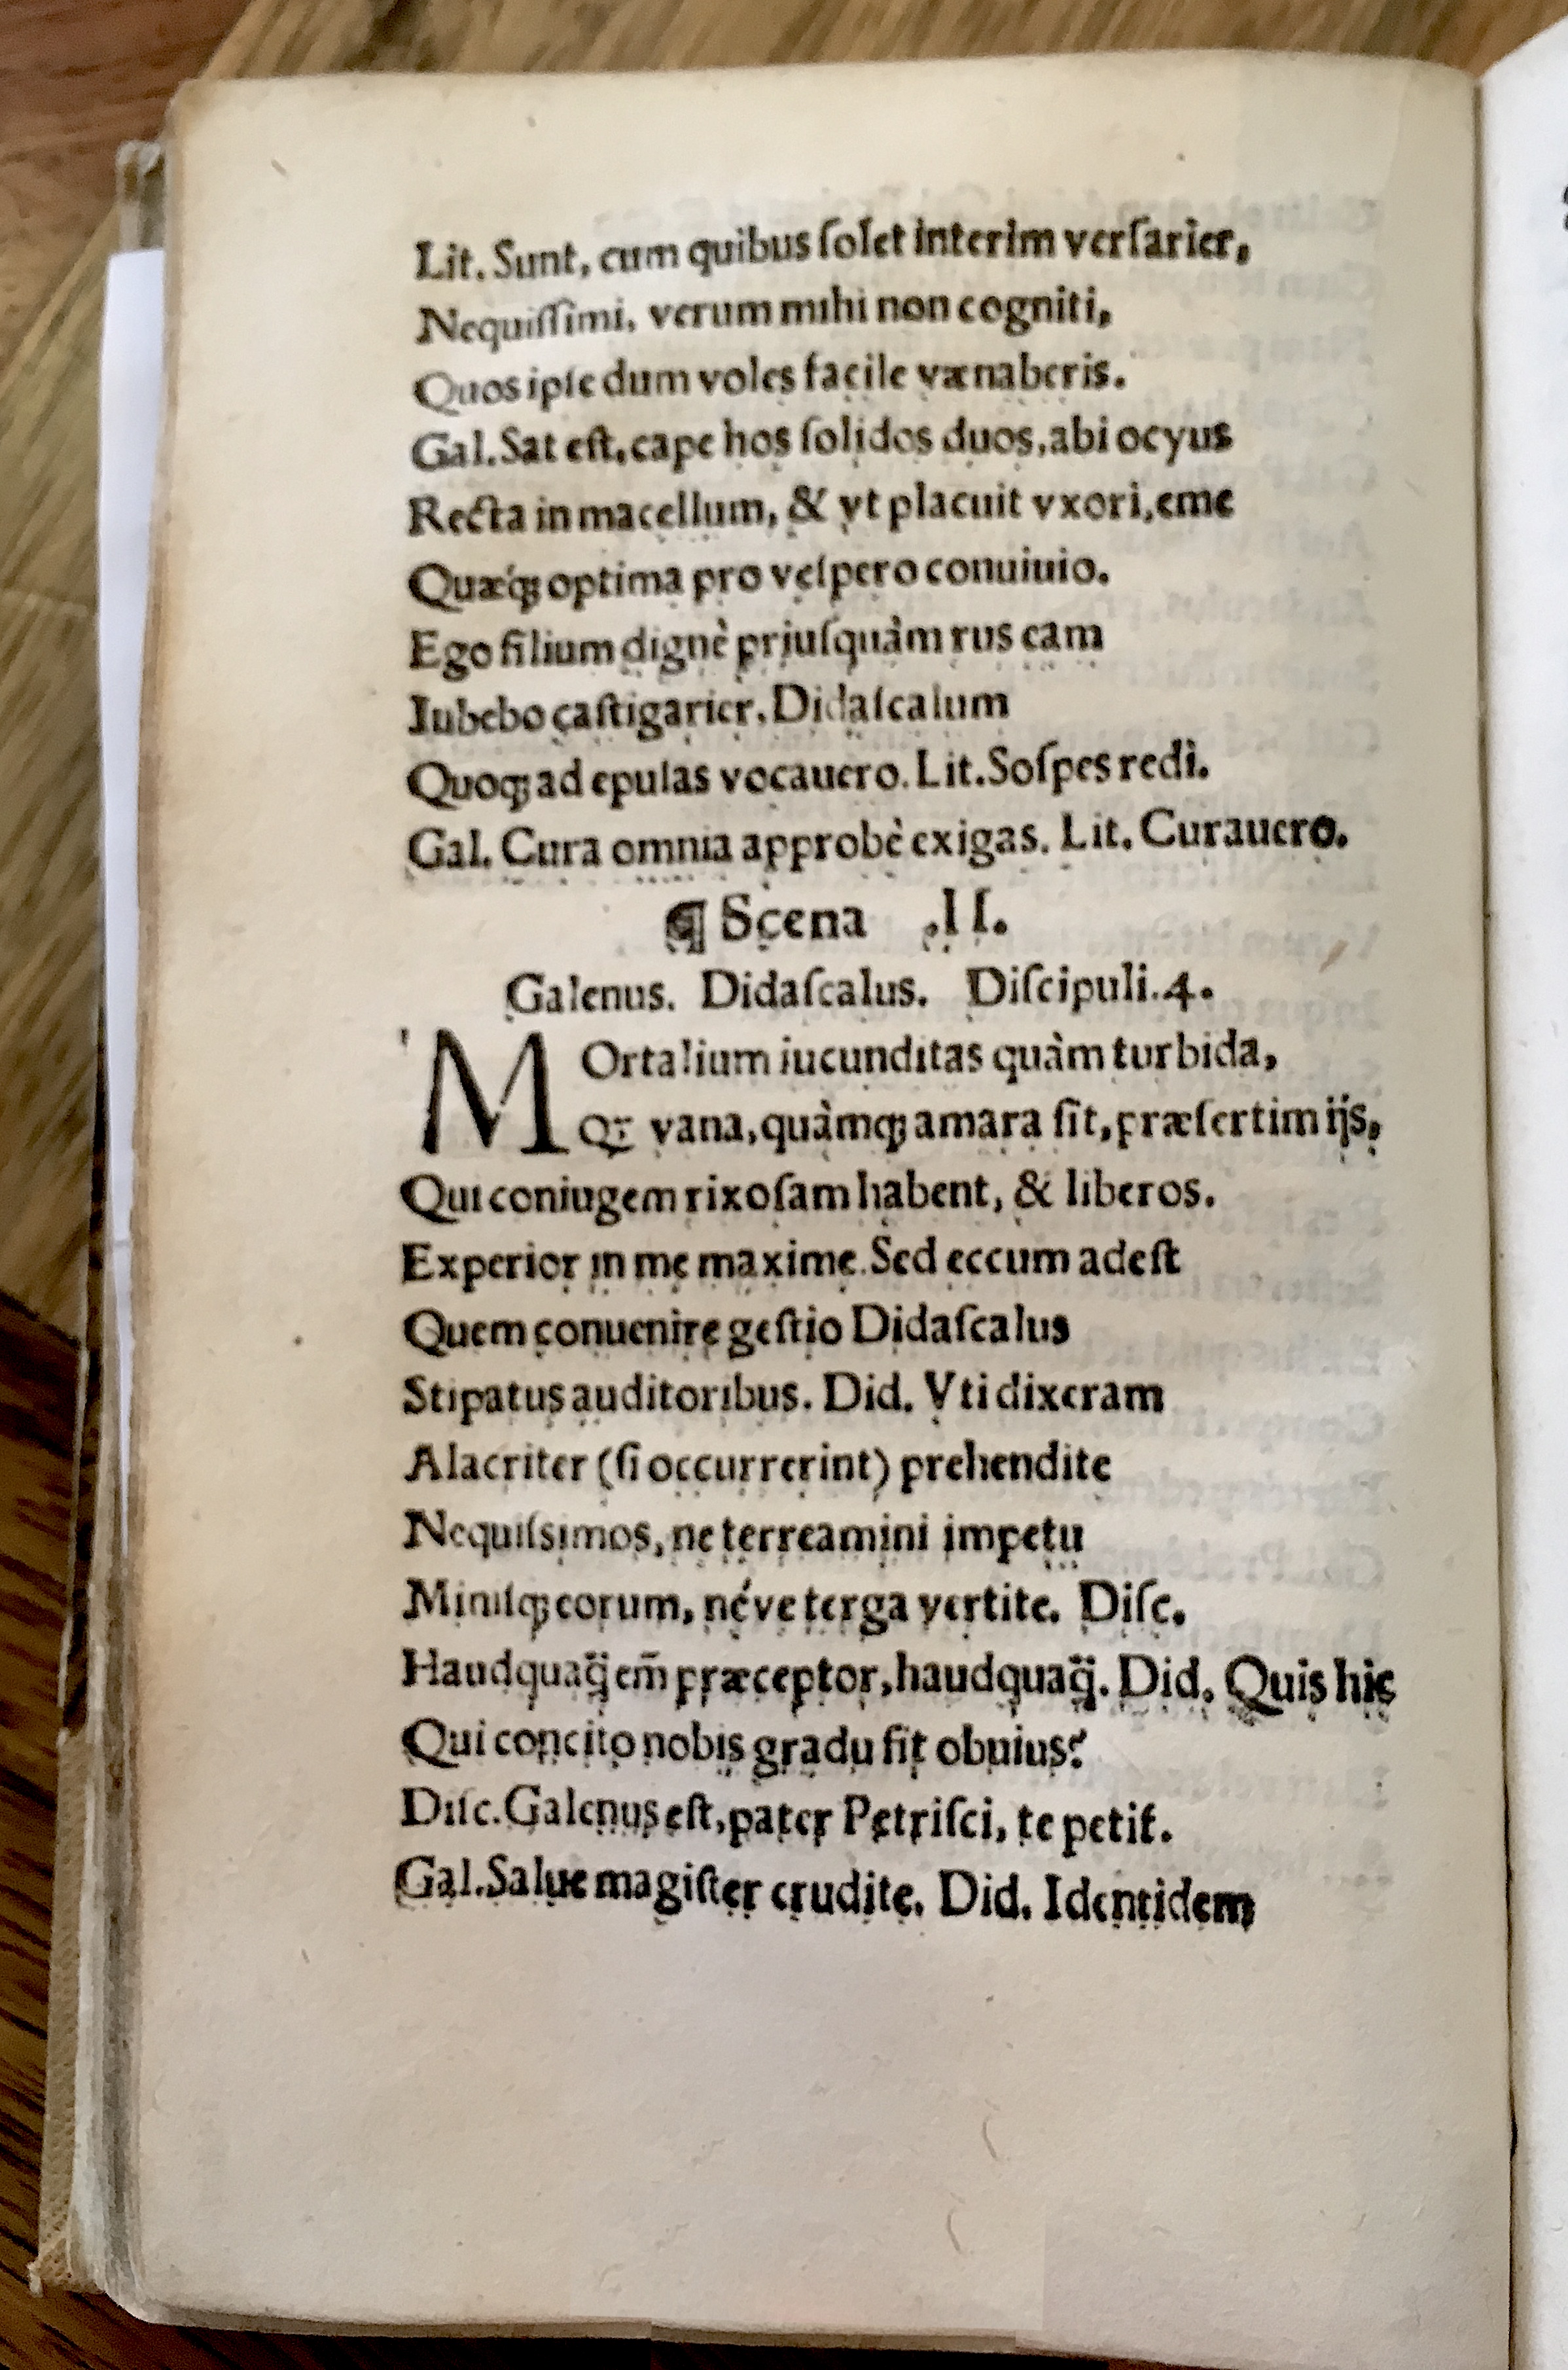 Lit. Sunt, cum quibus ſolet interim verſarier,
Nequiſſimi, verum mihi non cogniti,
Quos ipſe dum voles facile vænaberis.
Gal. Sat eſt, cape hos ſolidos duos, abi ocyus
Recta in macellum, & vt placuit vxori, eme
Quæq́ꝫ optima pro veſpero conuiuio.
Ego filium dignè priuſquàm rus eam
Iubebo caſtigarier. Didaſcalum
Quoqꝫ ad epulas vocauero. Lit. Soſpes redi.
Gal. Cura omnia approbè exigas. Lit. Curauero.
¶ Scena .II.
Galenus. Didaſcalus. Diſcipuli.4.
MOrtalium iucunditas quàm turbida,
Qꝫ̄ vana, quàmqꝫ amara ſit, præſertim ijs,
Qui coniugem rixoſam habent, & liberos.
Experior in me maxime. Sed eccum adeſt
Quem conuenire geſtio Didaſcalus
Stipatus auditoribus. Did. Vti dixeram
Alacriter (ſi occurrerint) prehendite
Nequiſsimos, ne terreamini impetu
Miniſqꝫ eorum, néve terga vertite. Diſc.
Haudquaq̃ em̃ præceptor, haudquaq̃. Did. Quis hic
Qui concito nobis gradu fit obuius?
Diſc. Galenus eſt, pater Petriſci, te petit.
Gal. Salue magiſter erudite. Did. Identidem